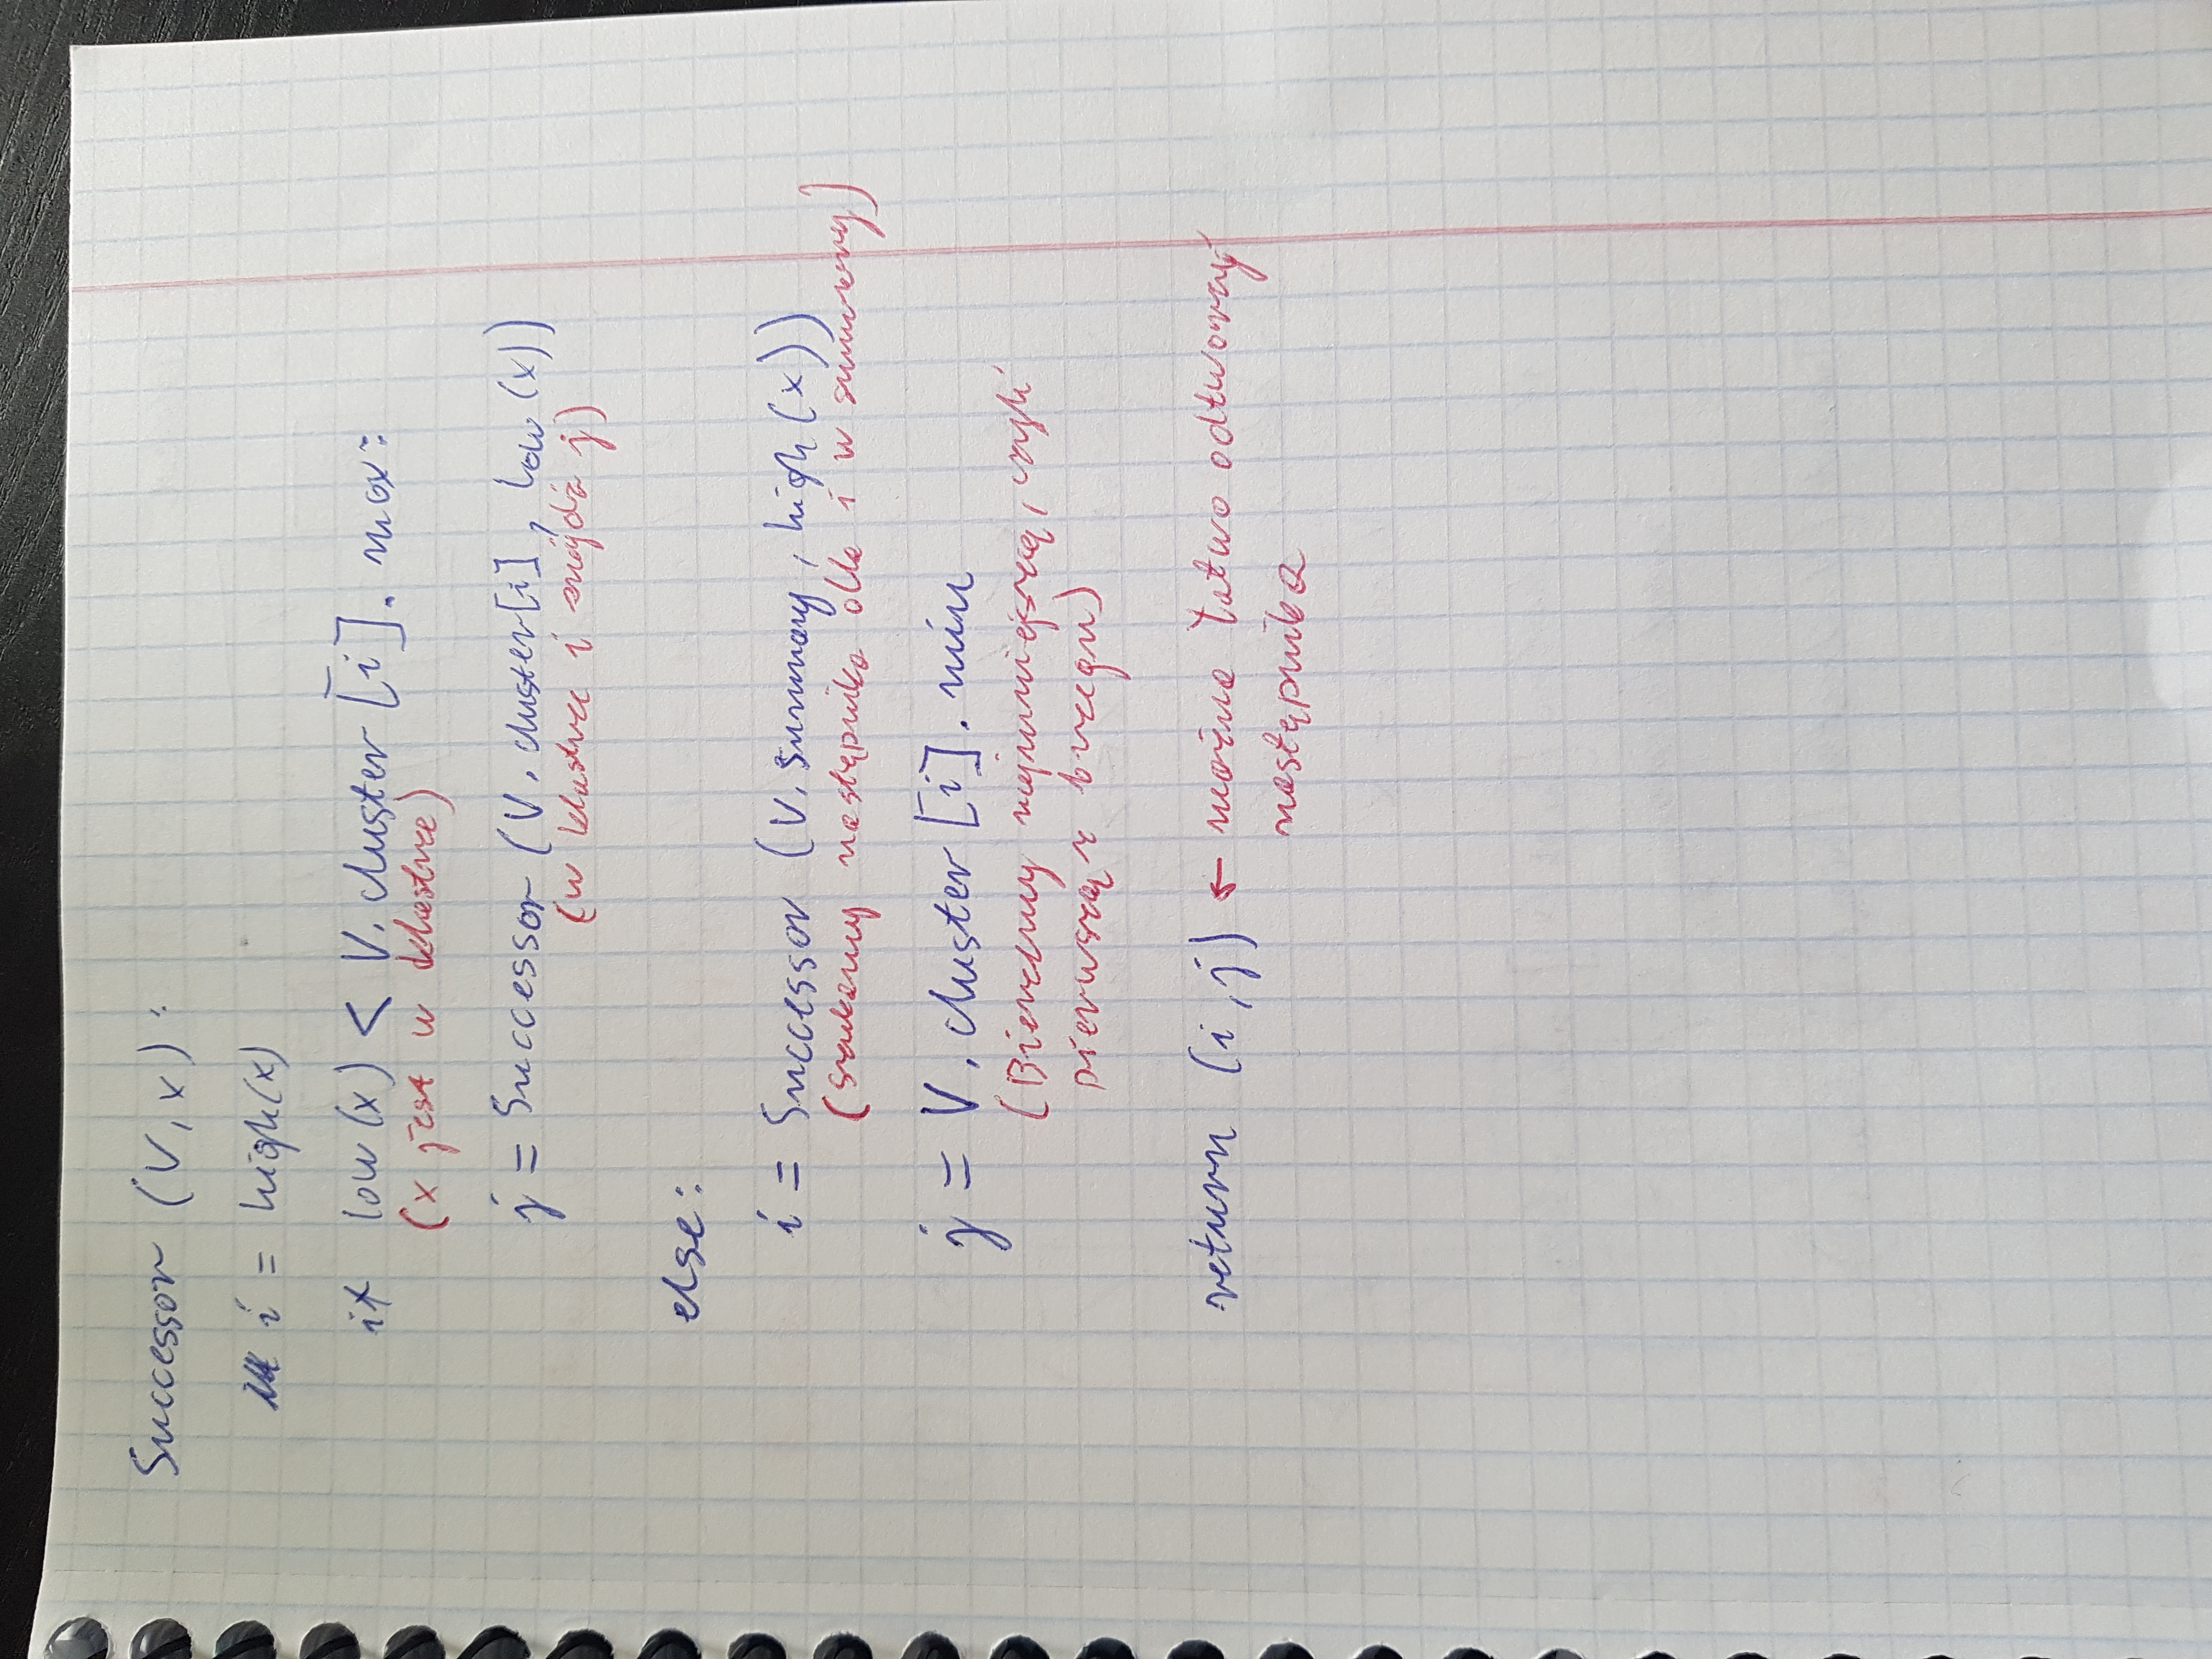 Successor (V, x):
i = high(x)
if low(x) < V.cluster[i].max:
(x jest w klastrze)
j = Successor(V.cluster[i], low(x))
(w klastrze i znajdź j)
else:
i = Successor (V.summary, high(x))
(szukamy następnika dla i w summary)
j = V.cluster[i].min
(Bierzemy najmniejszą, czyli
pierwszą z brzegu)
return (i,j) ← można łatwo odtworzyć
następnika